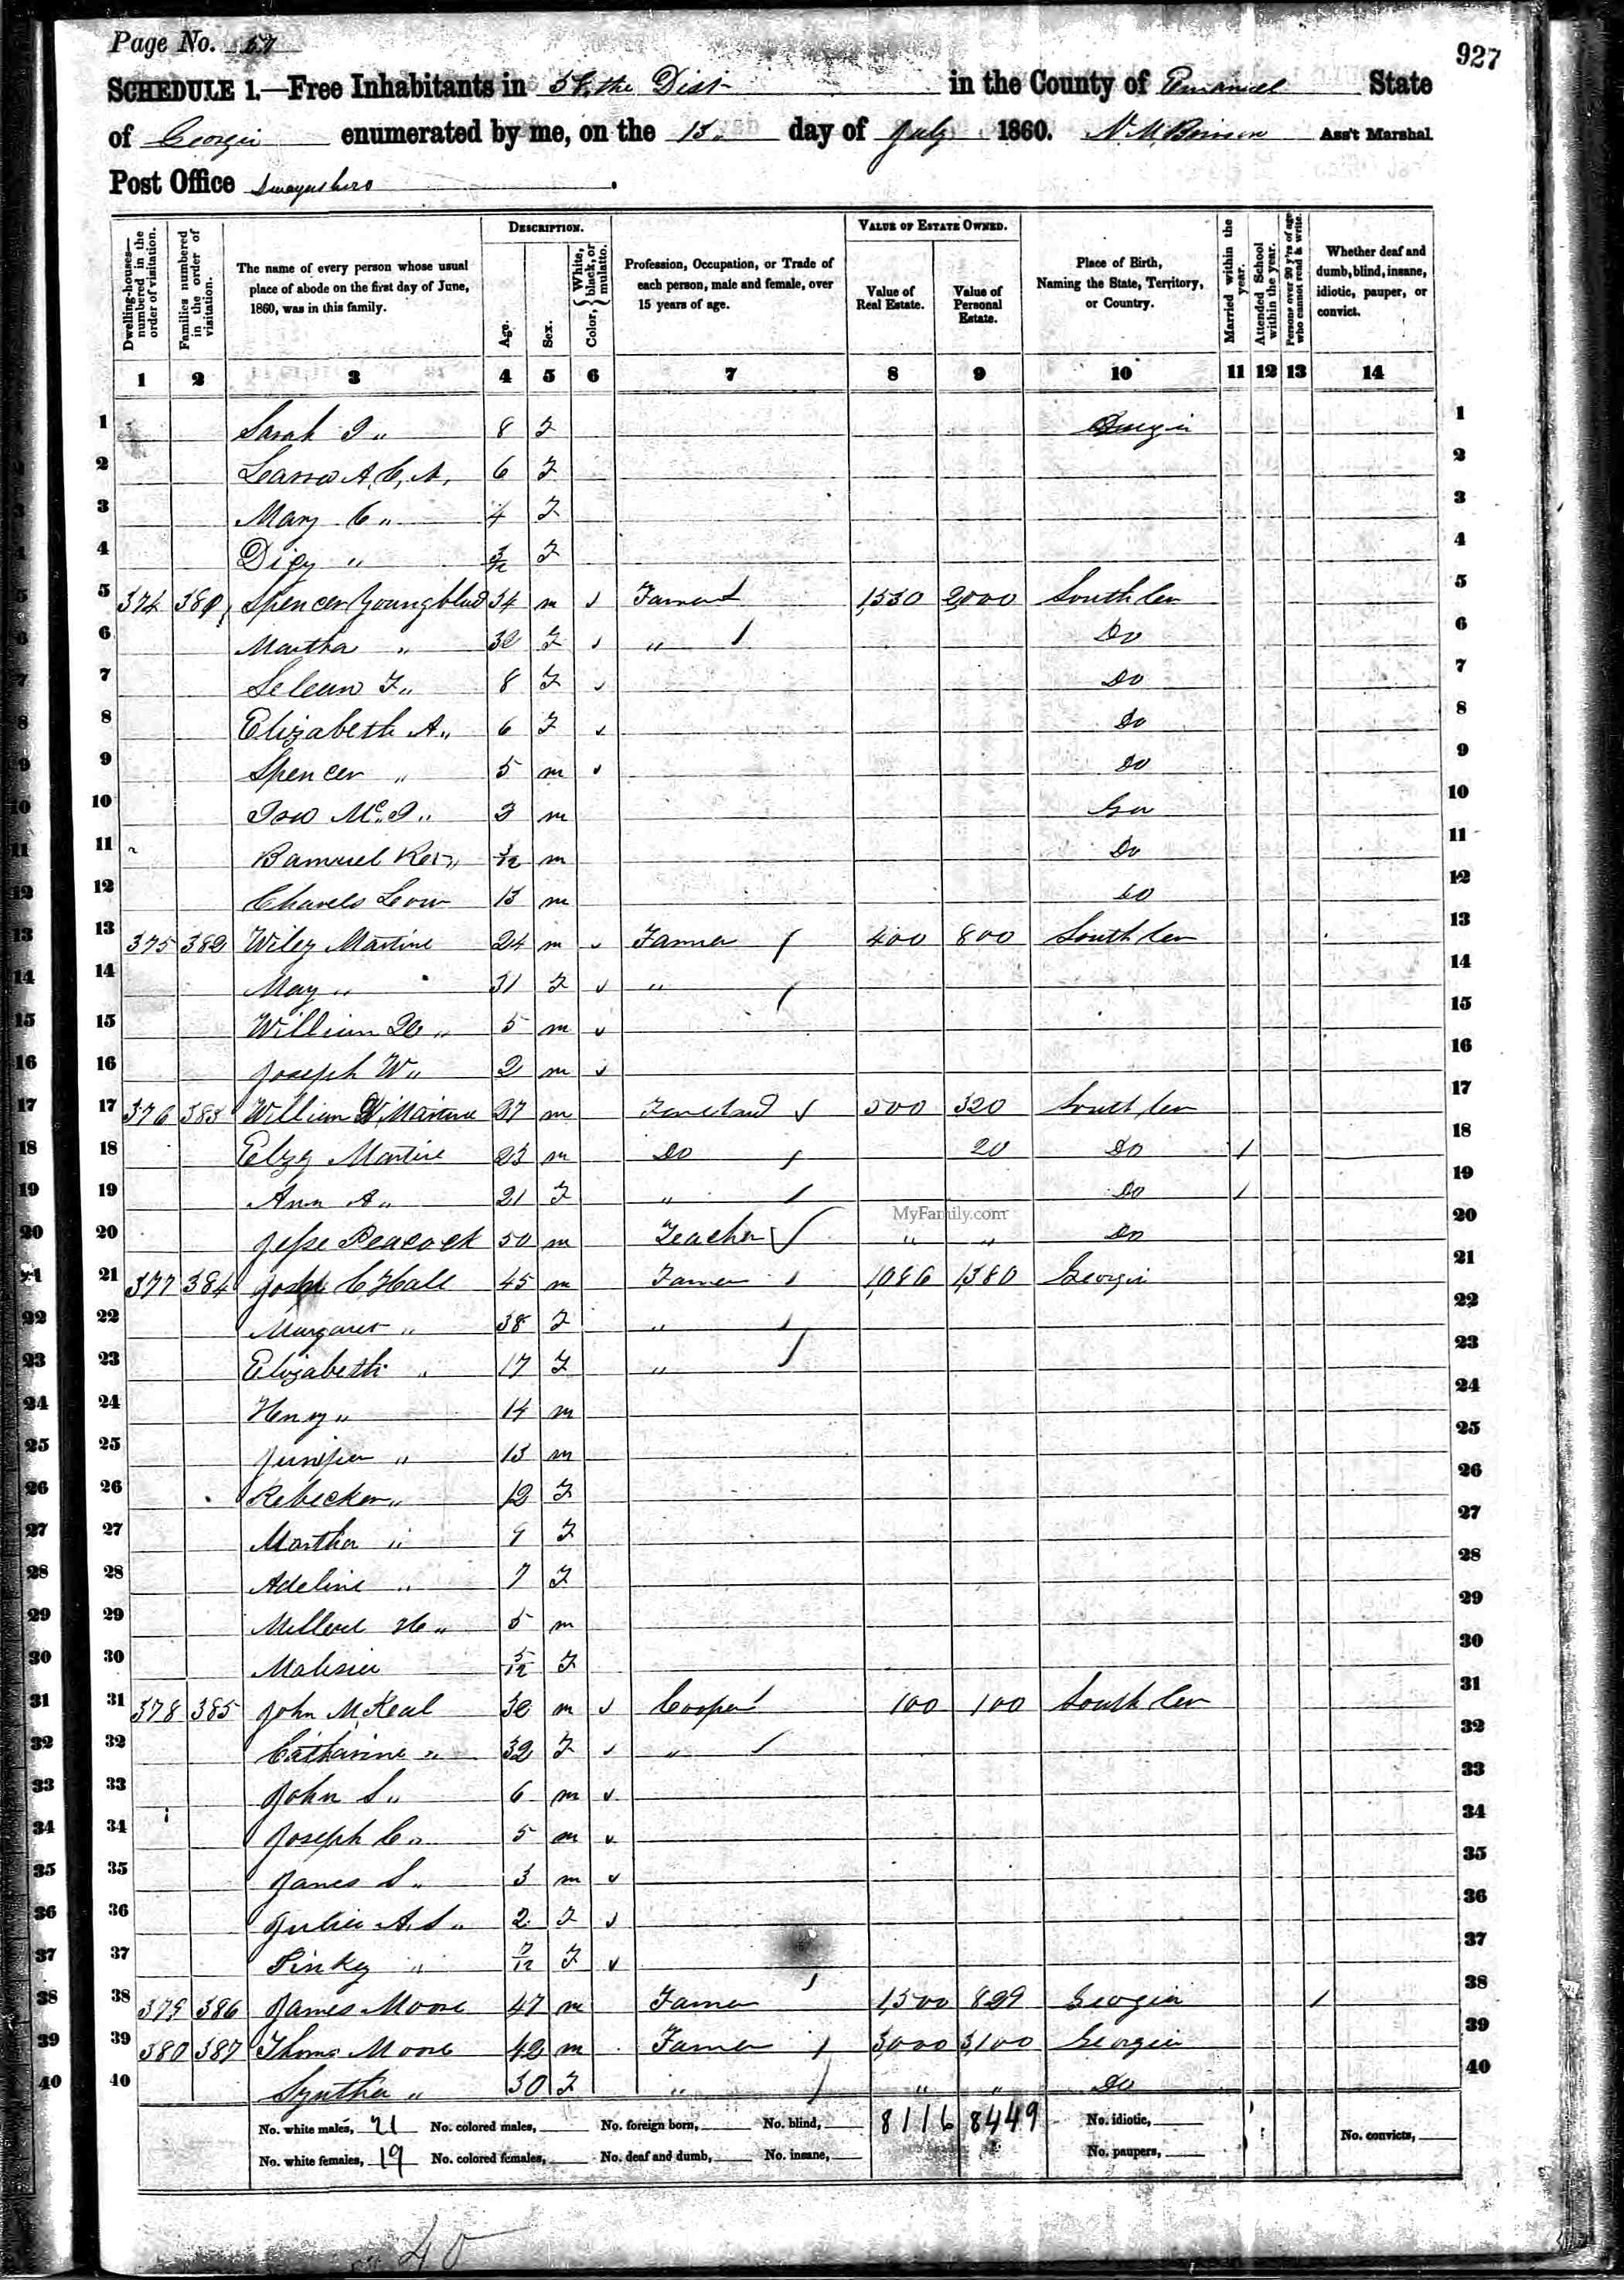 Page No. 57
927
SCHEDULE 1.—Free Inhabitants in 57the Dist in the County of Emanuel State
of Georgia enumerated by me, on the 13. day of July 1860. Ass't Marshal
Post Office Swaynsboro
Dwelling-houses—numbered in the order of visitation.
Families numbered in the order of visitation.
The name of every person whose usual place of abode on the first day of June, 1860, was in this family.
DESCRIPTION.
Age.
Sex.
Color, { White, black, or mulatto.
Profession, Occupation, or Trade of each person, male and female, over 15 years of age.
VALUE OF ESTATE OWNED.
Value of Real Estate.
Value of Personal Estate.
Place of Birth, Naming the State, Territory, or Country.
Married within the year.
Attended School within the year.
Persons over 20 y'rs of age who cannot read & write.
Whether deaf and dumb, blind, insane, idiotic, pauper, or convict.
1 2 3 4 5 6 7 8 9 10 11 12 13 14
1 Sarah J " 8 F Georgia 1
2 A. C. A. 6 F 2
3 Mary C " 4 F 3
4 Dicy " 3/12 F 4
5 374 381 Spencer Youngblud 34 m Farmer 1,550 2,000 South Car 5
6 Martha " 32 F " Do 6
7 F " 8 F Do 7
8 Elizabeth A " 6 F Do 8
9 Spencer " 5 m Do 9
10 Mc. J " 3 m Geo 10
11 3/12 m Do 11
12 Charels 13 m Do 12
13 375 382 Wiley Martine 24 m Farmer 400 800 South Car 13
14 May " 31 F " 14
15 William " 5 m 15
16 Joseph W " 2 m 16
17 376 383 William 27 m 500 320 South Car 17
18 Elzy Martine 23 m Do 20 Do 1 18
19 Ann A " 21 F " Do 1 19
MyFamily.com
20 Jesse Peacock 50 m Teacher " " Do 20
21 377 384 Joseph C Hall 45 m Farmer 1,086 1,380 Georgia 21
22 Margaret " 38 F " 22
23 Elizabeth " 17 F " 23
24 Henry " 14 m 24
25 Juniper " 13 m 25
26 Rebecker " 12 F 26
27 Martha " 9 F 27
28 Adeline " 7 F 28
29 Millerd H " 5 m 29
30 5/12 F 30
31 378 385 John McKeal 32 m Cooper 100 100 South Car 31
32 Catharine " 32 F " 32
33 John S " 6 m 33
34 Joseph C " 5 m 34
35 James S " 3 m 35
36 Julia A. S " 2 F 36
37 Pinky " 7/12 F 37
38 379 386 James Moore 47 m Farmer 1,500 829 Georgia 1 38
39 380 387 Thoms Moore 42 m Farmer 3,000 3,100 Georgia 39
40 Syntha " 30 F " " " Do 40
No. white males, 21 No. colored males, No. foreign born, No. blind, 8116 8449 No. idiotic,
No. white females, 19 No. colored females, No. deaf and dumb, No. insane, No. paupers, No. convicts,
40